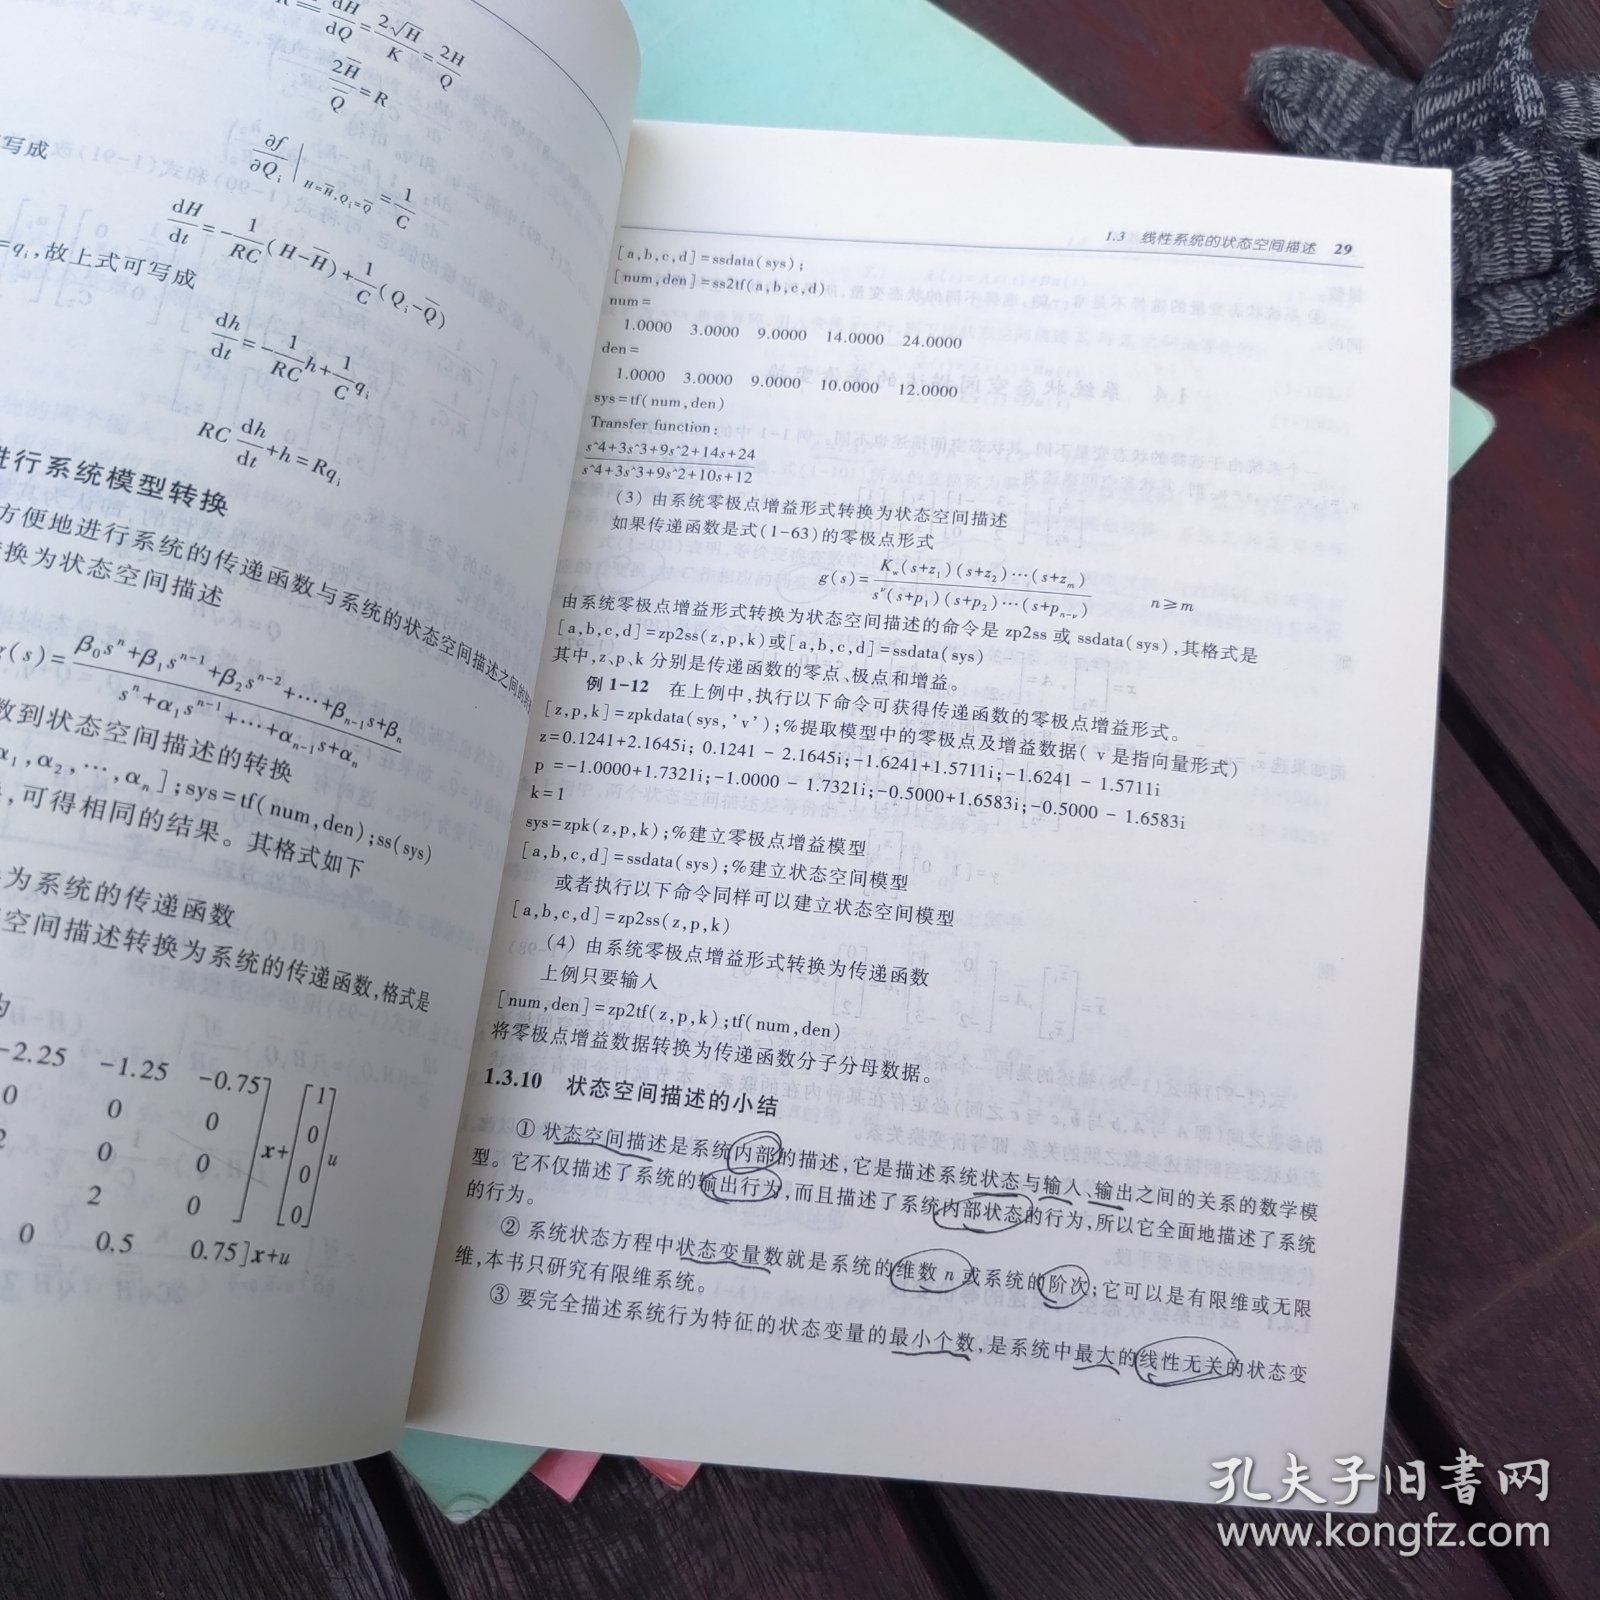 dH/dQ=2√H/K=2H/Q
2H̄/Q̄=R
写成
∂f/∂Qᵢ|H=H̄,Qᵢ=Q̄=1/C
dH/dt=-1/RC(H-H̄)+1/C(Qᵢ-Q̄)
=qᵢ,故上式可写成
dh/dt=-1/RC h+1/C qᵢ
RC dh/dt+h=Rqᵢ
进行系统模型转换
方便地进行系统的传递函数与系统的状态空间描述之间的转
换为状态空间描述
g(s)=β₀sⁿ+β₁sⁿ⁻¹+β₂sⁿ⁻²+⋯+βₙ₋₁s+βₙ
sⁿ+α₁sⁿ⁻¹+⋯+αₙ₋₁s+αₙ
数到状态空间描述的转换
α₁,α₂,⋯,αₙ];sys=tf(num,den);ss(sys)
,可得相同的结果。其格式如下
为系统的传递函数
空间描述转换为系统的传递函数,格式是
-2.25 -1.25 -0.75 1
0 0 0 0
2 0 0 x+ 0 u
2 0 0
0 0.5 0.75]x+u
1.3 线性系统的状态空间描述 29
[a,b,c,d]=ssdata(sys);
[num,den]=ss2tf(a,b,c,d)
num=
1.0000 3.0000 9.0000 14.0000 24.0000
den=
1.0000 3.0000 9.0000 10.0000 12.0000
sys=tf(num,den)
Transfer function:
s^4+3s^3+9s^2+14s+24
s^4+3s^3+9s^2+10s+12
(3) 由系统零极点增益形式转换为状态空间描述
如果传递函数是式(1-63)的零极点形式
g(s)=Kw(s+z₁)(s+z₂)⋯(s+zₘ)/sᵛ(s+p₁)(s+p₂)⋯(s+pₙ₋ᵥ) n≥m
由系统零极点增益形式转换为状态空间描述的命令是 zp2ss 或 ssdata(sys),其格式是
[a,b,c,d]=zp2ss(z,p,k)或[a,b,c,d]=ssdata(sys)
其中,z、p、k 分别是传递函数的零点、极点和增益。
例 1-12 在上例中,执行以下命令可获得传递函数的零极点增益形式。
[z,p,k]=zpkdata(sys,'v');%提取模型中的零极点及增益数据( v 是指向量形式)
z=0.1241+2.1645i; 0.1241 - 2.1645i;-1.6241+1.5711i;-1.6241 - 1.5711i
p =-1.0000+1.7321i;-1.0000 - 1.7321i;-0.5000+1.6583i;-0.5000 - 1.6583i
k=1
sys=zpk(z,p,k);%建立零极点增益模型
[a,b,c,d]=ssdata(sys);%建立状态空间模型
或者执行以下命令同样可以建立状态空间模型
[a,b,c,d]=zp2ss(z,p,k)
(4) 由系统零极点增益形式转换为传递函数
上例只要输入
[num,den]=zp2tf(z,p,k);tf(num,den)
将零极点增益数据转换为传递函数分子分母数据。
1.3.10 状态空间描述的小结
① 状态空间描述是系统内部的描述,它是描述系统状态与输入、输出之间的关系的数学模
型。它不仅描述了系统的输出行为,而且描述了系统内部状态的行为,所以它全面地描述了系统
的行为。
② 系统状态方程中状态变量数就是系统的维数 n 或系统的阶次;它可以是有限维或无限
维,本书只研究有限维系统。
③ 要完全描述系统行为特征的状态变量的最小个数,是系统中最大的线性无关的状态变
孔夫子旧书网
www.kongfz.com